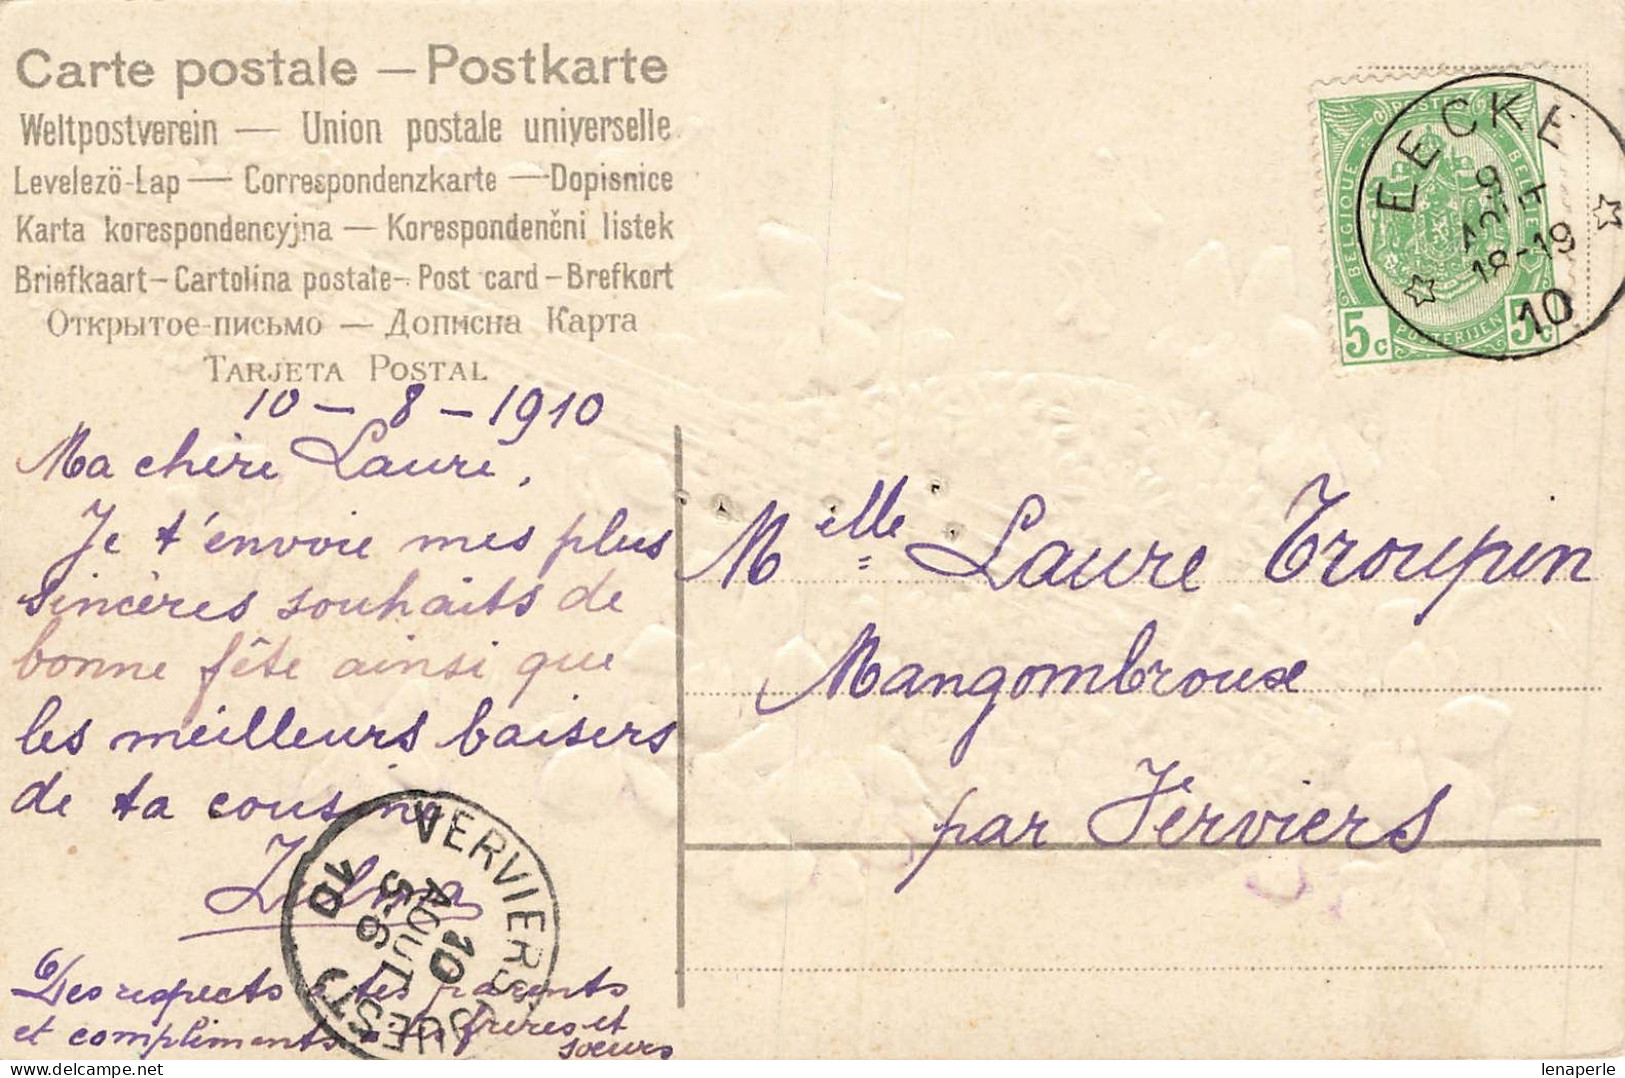 Carte postale — Postkarte
Weltpostverein — Union postale universelle
Levelezö-Lap — Correspondenzkarte — Dopisnice
Karta korespondencyjna — Korespondenční listek
Briefkaart — Cartolina postale - Post card - Brefkort
Открытое-письмо — Дописна Карта
Tarjeta Postal
10 - 8 - 1910
Ma chère Laure,
Je t'envoie mes plus
sincères souhaits de
bonne fête ainsi que
les meilleurs baisers
de ta cousine
Zulma
Des respects à tes parents
et compliments à tes frères et
sœurs
VERVIERS OUEST
10 AOUT 5-6 10
POSTES
BELGIQUE BELGIË
5c POSTERIJEN 5c
EECKE
9 AOUT
18-19
10
Melle Laure Troupin
Mangombroux
par Verviers
lenaperle